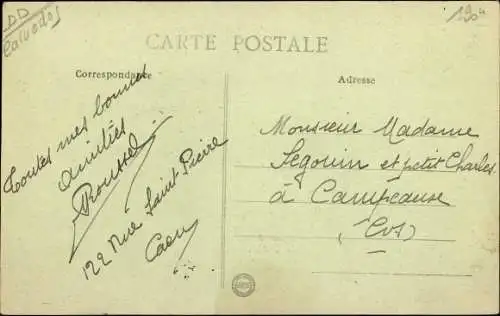 DD
Calvados
CARTE POSTALE
Correspondance
Adresse
Toutes mes bonnes
Amitiés
Roussel
122 Rue Saint Pierre
Caen
Monsieur Madame
Segouin et petit Charles
à Campeause
(Cvs)